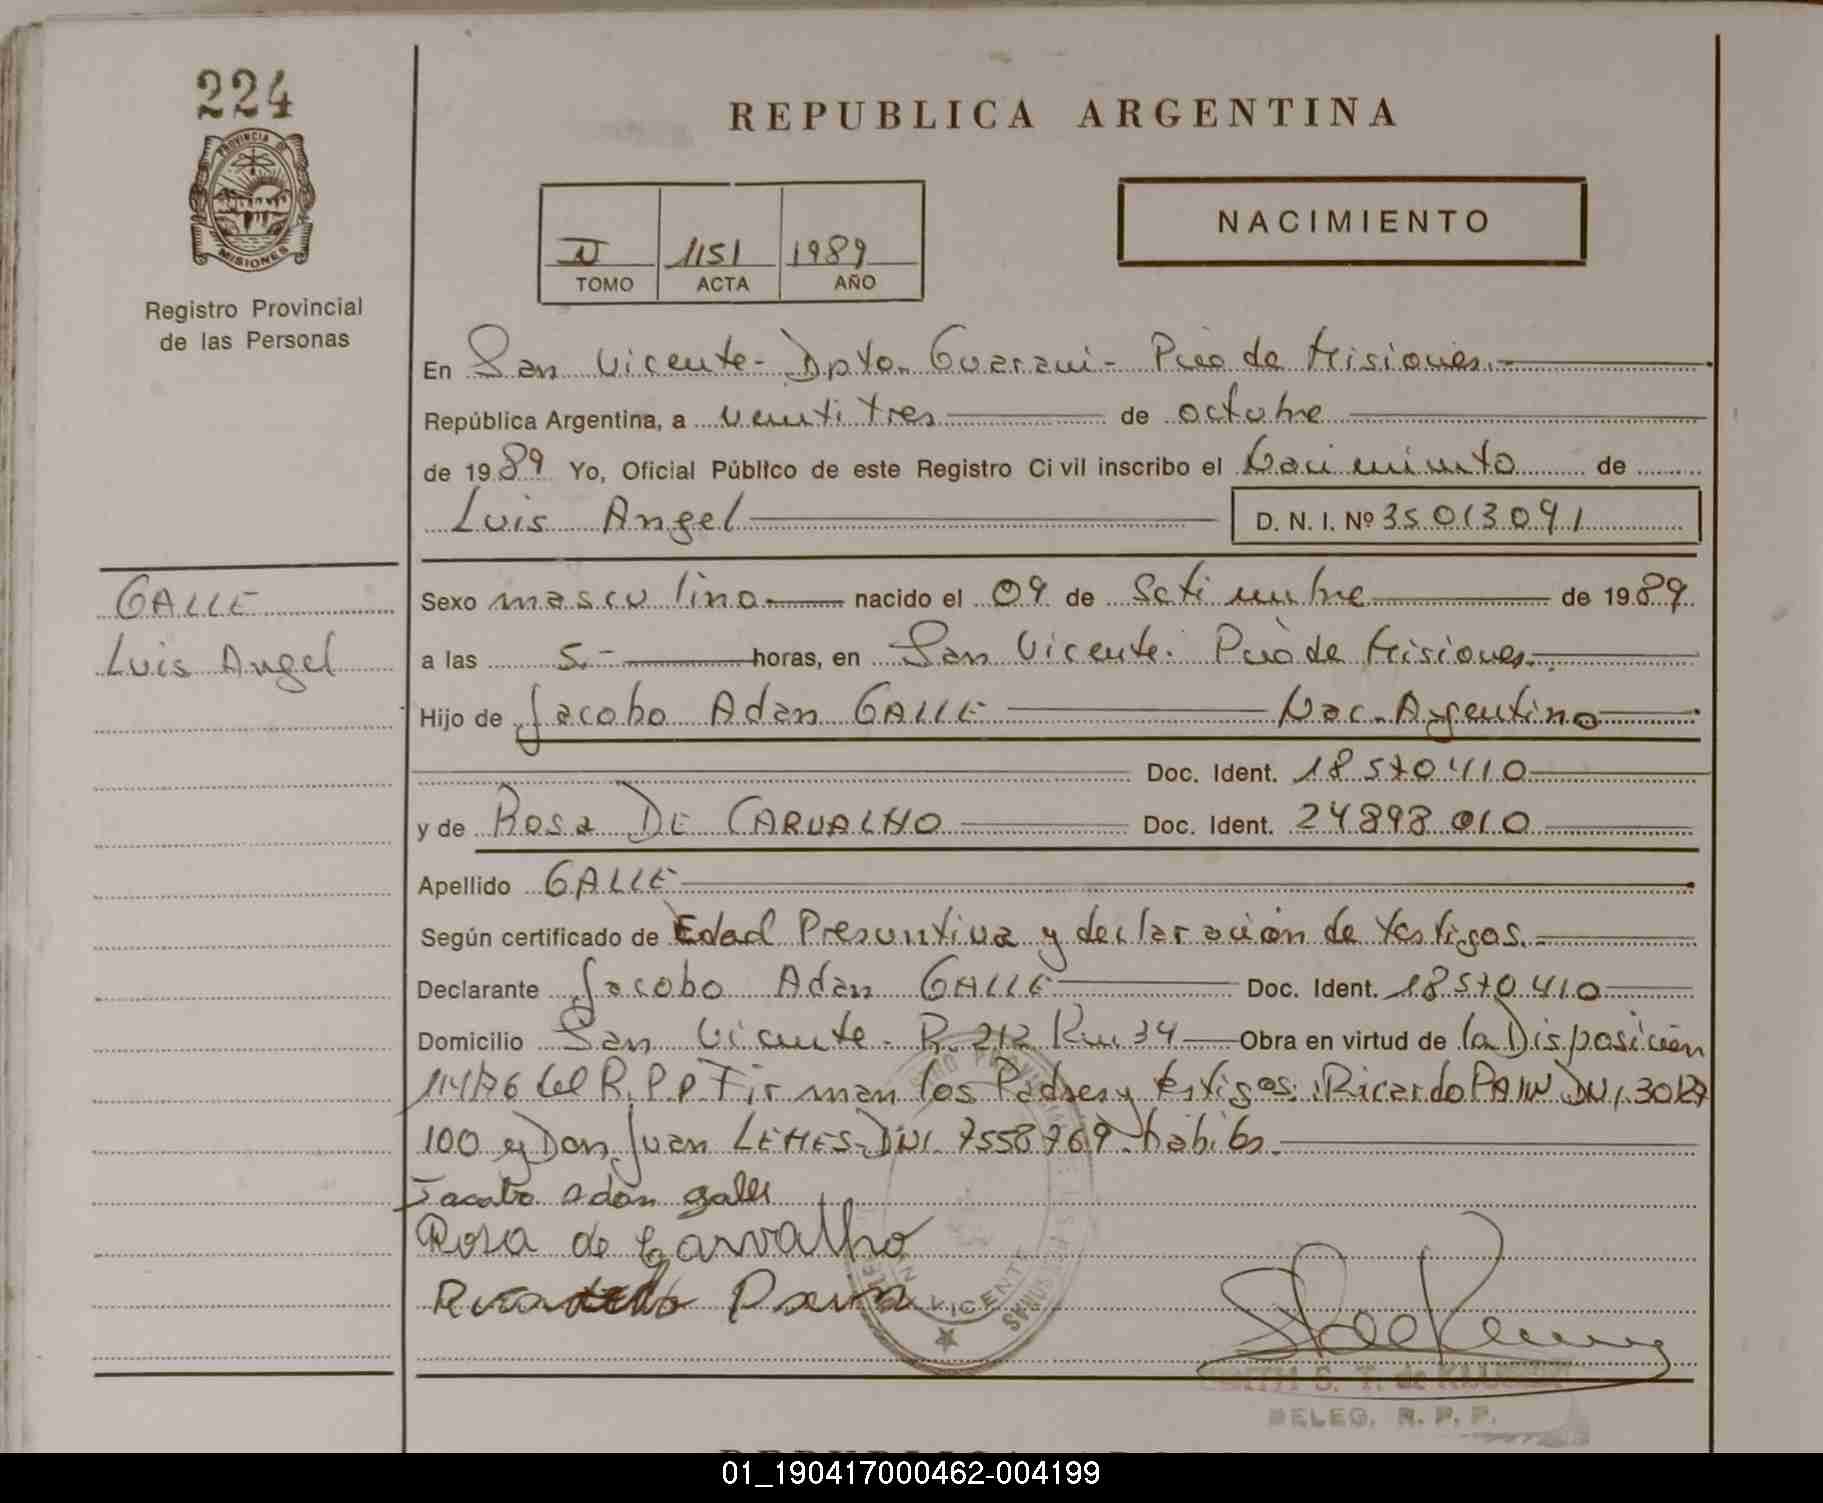 224
PROVINCIA DE
MISIONES
Registro Provincial
de las Personas
REPUBLICA ARGENTINA
NACIMIENTO
II 1151 1989
TOMO ACTA AÑO
En San Vicente - Dpto. Guarani - Pcia de Misiones.-
República Argentina, a veintitres de octubre
de 1989 Yo, Oficial Público de este Registro Civil inscribo el Nacimiento de
Luis Angel D. N. I. Nº 35013091
GALLE
Luis Angel
Sexo masculino nacido el 09 de Setiembre de 1989
a las 5.- horas, en San Vicente. Pcia de Misiones.
Hijo de Jacobo Adan GALLE Nac. Argentino
Doc. Ident. 18570410
y de Rosa DE CARVALHO Doc. Ident. 24898010
Apellido GALLE
Según certificado de Edad Presuntiva y declaración de testigos.
Declarante Jacobo Adan GALLE Doc. Ident. 18570410
Domicilio San Vicente - R. 212 Km. 34 Obra en virtud de la Disposición
114/76 del R.P.P. Firman los Padres y testigos: Ricardo DNI
100 y Don Juan LEMES - DNI. 7558769 - habiles.
Jacobo adan galle
Rosa de Carvalho
VICENTE
S. T. de
DELEG. R. P. P.
01_190417000462-004199